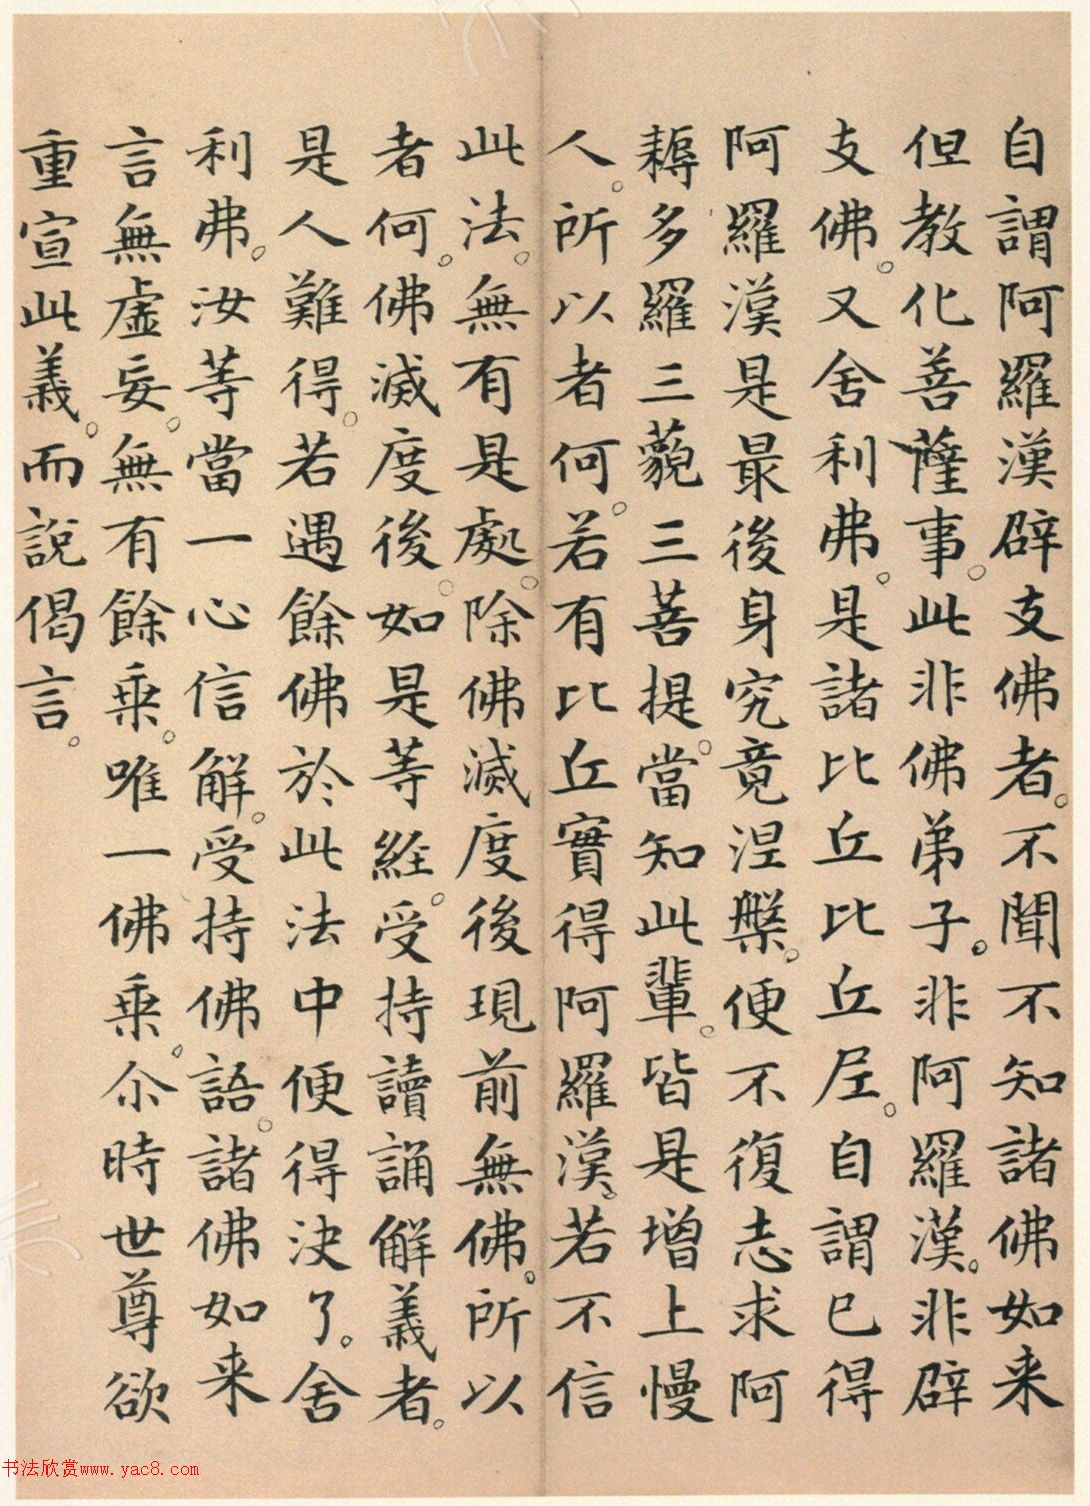 自謂阿羅漢辟支佛者。不聞不知諸佛如来
但教化菩薩事。此非佛弟子。非阿羅漢。非辟
支佛。又舍利弗。是諸比丘比丘尼。自謂已得
阿羅漢是最後身究竟涅槃。便不復志求阿
耨多羅三藐三菩提。當知此輩。皆是增上慢
人。所以者何。若有比丘實得阿羅漢。若不信
此法。無有是處。除佛滅度後現前無佛。所以
者何。佛滅度後。如是等經。受持讀誦解義者。
是人難得。若遇餘佛於此法中便得決了。舍
利弗。汝等當一心信解。受持佛語。諸佛如来
言無虛妄。無有餘乘。唯一佛乘。尒時世尊欲
重宣此義。而說偈言。
书法欣赏www.yac8.com